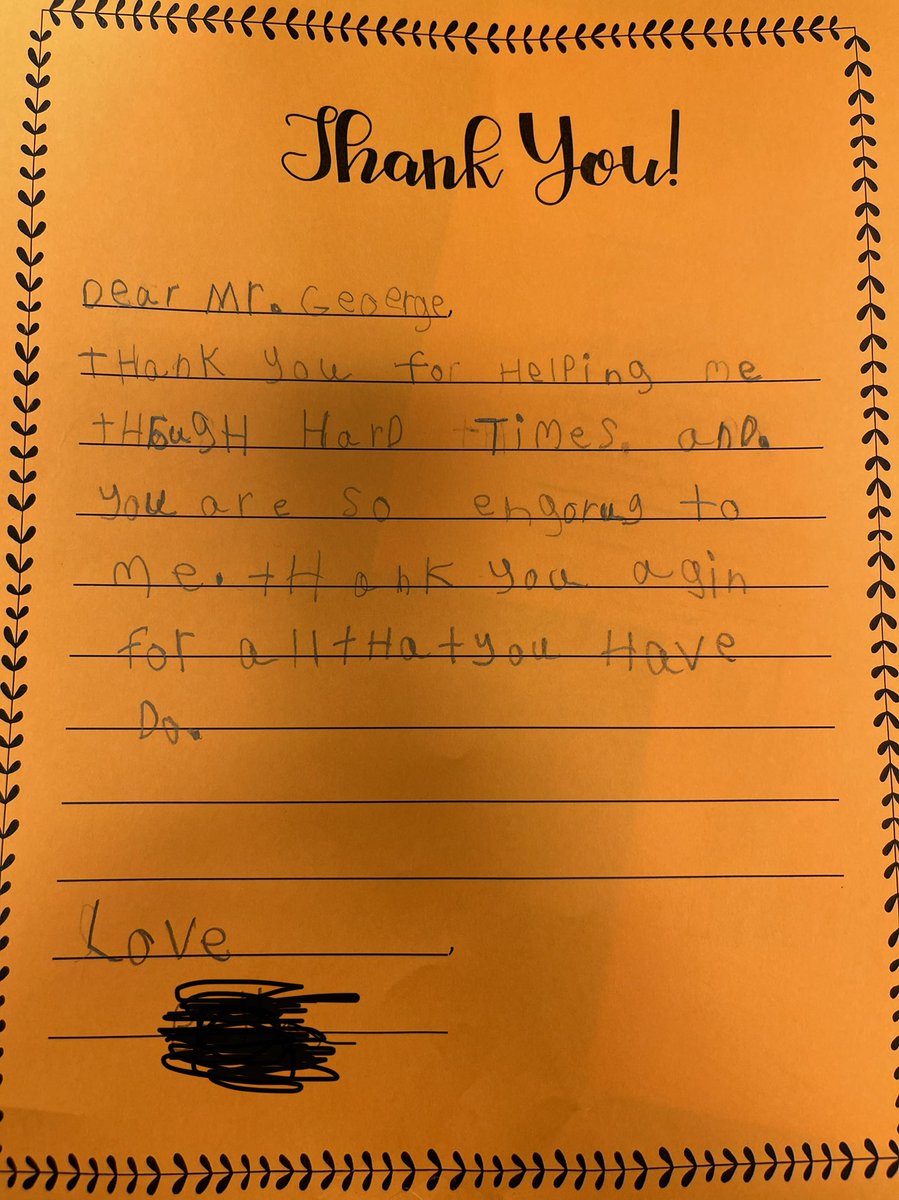 Thank You!
Dear Mr. Geoerge,
tHank you for HelPing me
tHough HarD Times. anD.
you are so engorug to
Me. tHank you agin
for all tHat you Have
Do.
Love,